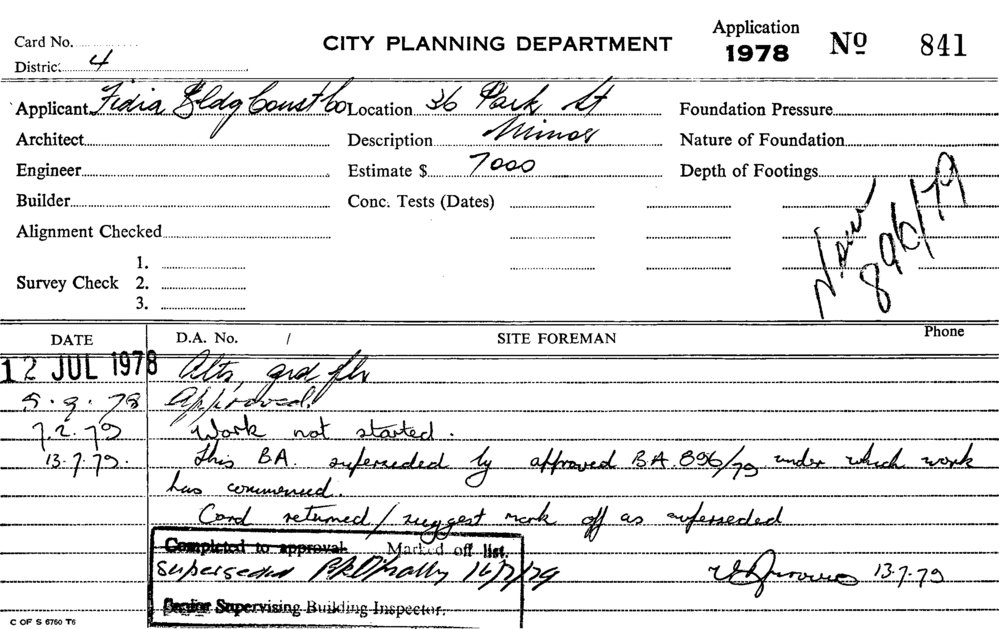 Card No.
CITY PLANNING DEPARTMENT
Application
1978
Nº 841
District 4
Applicant Fidia Bldg Const Co Location 36 Park St Foundation Pressure
Architect Description Minor Nature of Foundation
Engineer Estimate $ 7000 Depth of Footings
Builder Conc. Tests (Dates)
Alignment Checked
896/79
1.
Survey Check 2.
3.
DATE D.A. No. / SITE FOREMAN Phone
12 JUL 1978 Alts, grd flr
5.9.78 Approved.
7.2.79 Work not started.
13.7.79. This BA. superseded by approved BA. 896/79 under which work
has commenced.
Card returned / suggest mark off as superseded
Completed to approval Marked off list.
superseded 16/7/79
13.7.79
Senior Supervising Building Inspector.
C OF S 6760 T6